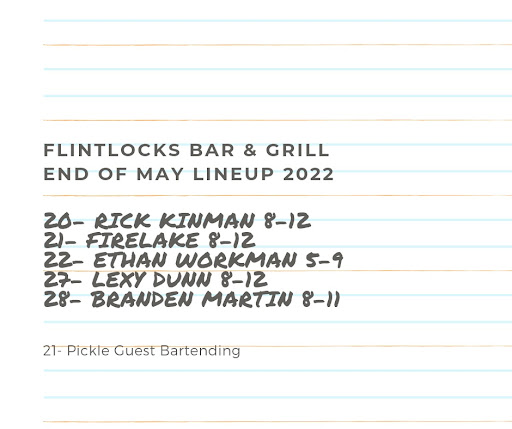 FLINTLOCKS BAR & GRILL
END OF MAY LINEUP 2022
20- RICK KINMAN 8-12
21- FIRELAKE 8-12
22- ETHAN WORKMAN 5-9
27- LEXY DUNN 8-12
28- BRANDEN MARTIN 8-11
21- Pickle Guest Bartending